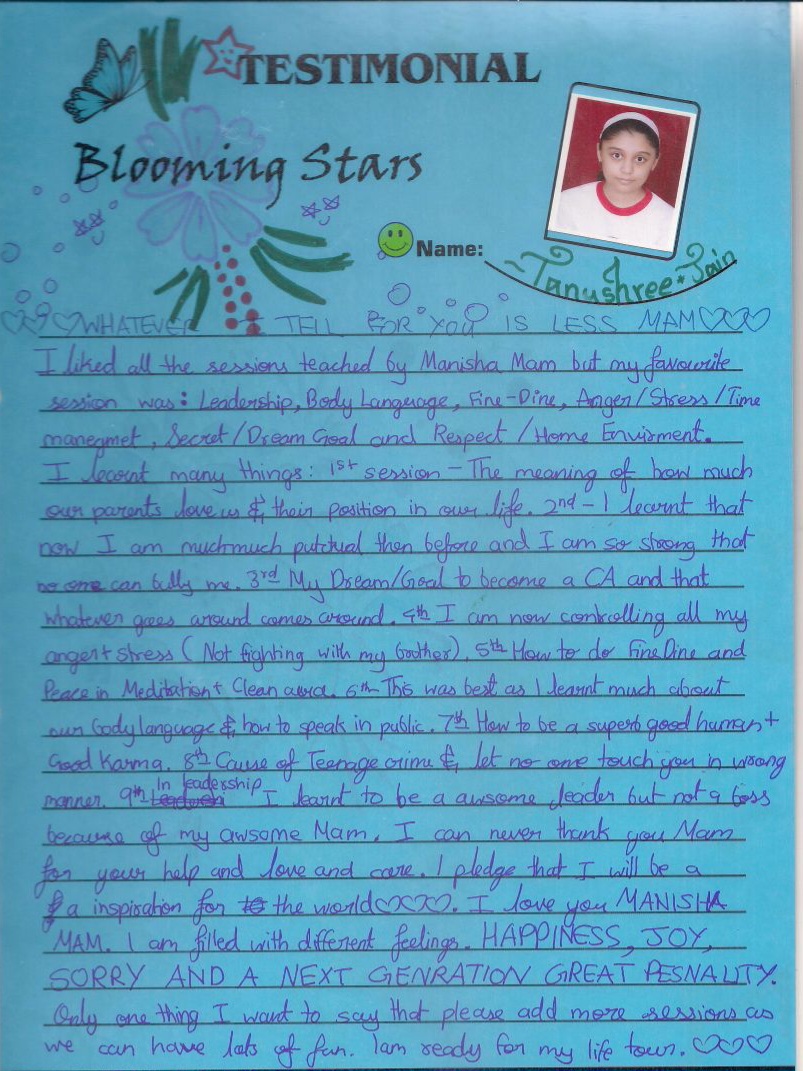 TESTIMONIAL
Blooming Stars
Name: Tanushree Jain
WHATEVER I TELL FOR YOU IS LESS MAM♡♡♡
I liked all the sessions teached by Manisha Mam but my favourite
session was: Leadership, Body Language, Fine-Dine, Anger/Stress/Time
manegmet, Secret/Dream Goal and Respect/Home Envirment.
I learnt many things: 1st session - The meaning of how much
our parents love us & their position in our life. 2nd - I learnt that
now I am muchmuch putctual then before and I am so strong that
no one can bully me. 3rd My Dream/Goal to become a CA and that
whatever goes around comes around. 4th I am now controlling all my
anger+stress (Not fighting with my brother). 5th How to do Fine Dine and
Peace in Meditation+ Clean aura. 6th This was best as I learnt much about
our body language & how to speak in public. 7th How to be a superb good human+
Good Karma. 8th Cause of Teenage crime & let no one touch you in wrong
manner. 9th In leadership I learnt to be a awsome leader but not a boss
because of my awsome Mam. I can never thank you Mam
for your help and love and care. I pledge that I will be a
a inspiration for the world♡♡♡♡. I love you MANISHA
MAM. I am filled with different feelings. HAPPINESS, JOY,
SORRY AND A NEXT GENRATION GREAT PESNALITY.
Only one thing I want to say that please add more sessions as
we can have lots of fun. Iam ready for my life tour. ♡♡♡